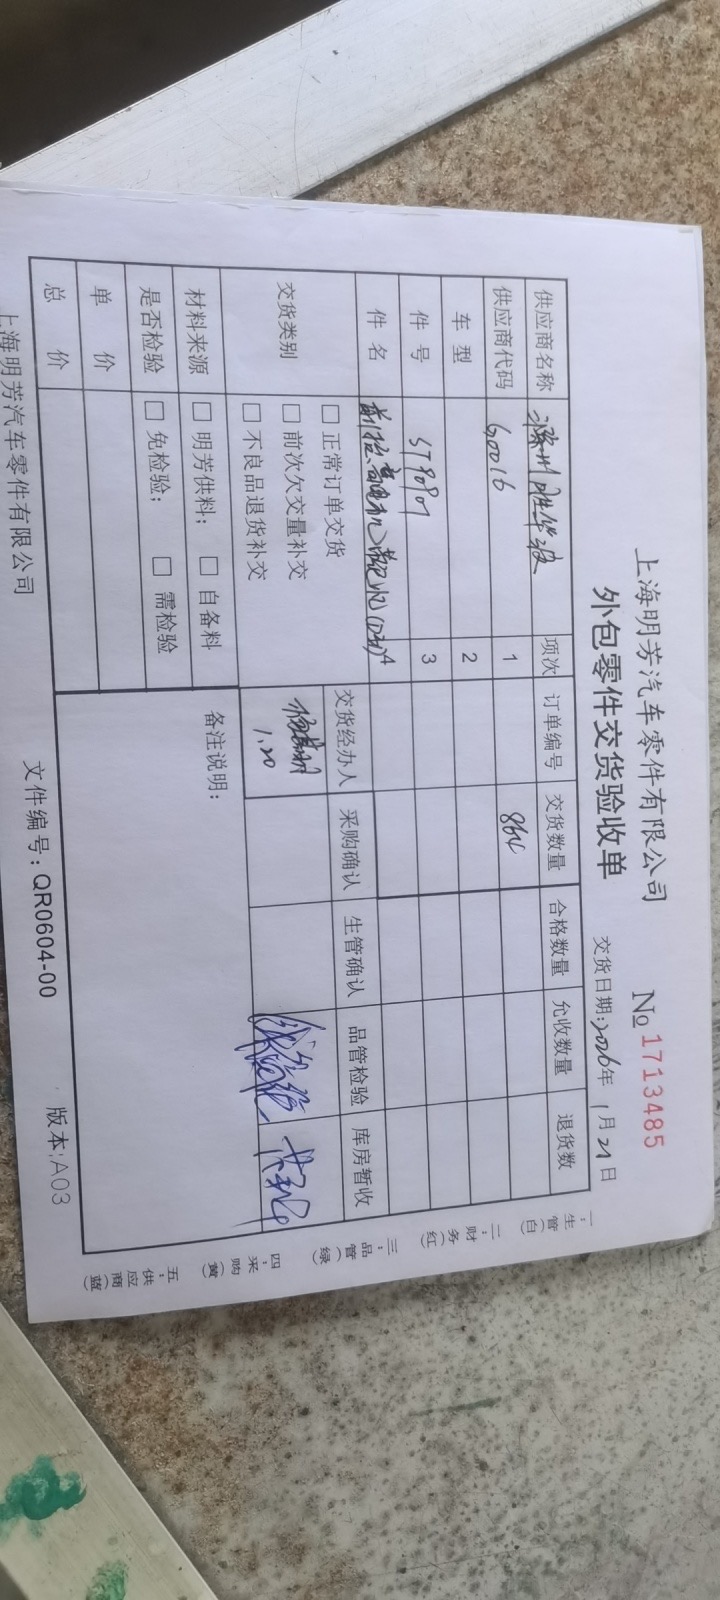 上海明芳汽车零件有限公司
№ 1713485
外包零件交货验收单
交货日期:2026年1月21日
供应商名称 滁州 项次 订单编号 交货数量 合格数量 允收数量 退货数
供应商代码 60016 1 864
车 型 2
件 号 ST8P01 3
件 名 4
交货类别 □ 正常订单交货
□ 前次欠交量补交
□ 不良品退货补交
交货经办人 采购确认 生管确认 品管检验 库房暂收
1.20
材料来源 □ 明芳供料; □ 自备料
备注说明:
是否检验 □ 免检验; □ 需检验
单 价
总 价
一:生管(白)
二:财务(红)
三:品管(绿)
四:采购(黄)
五:供应商(蓝)
上海明芳汽车零件有限公司
文件编号: QR0604-00
版本:A03